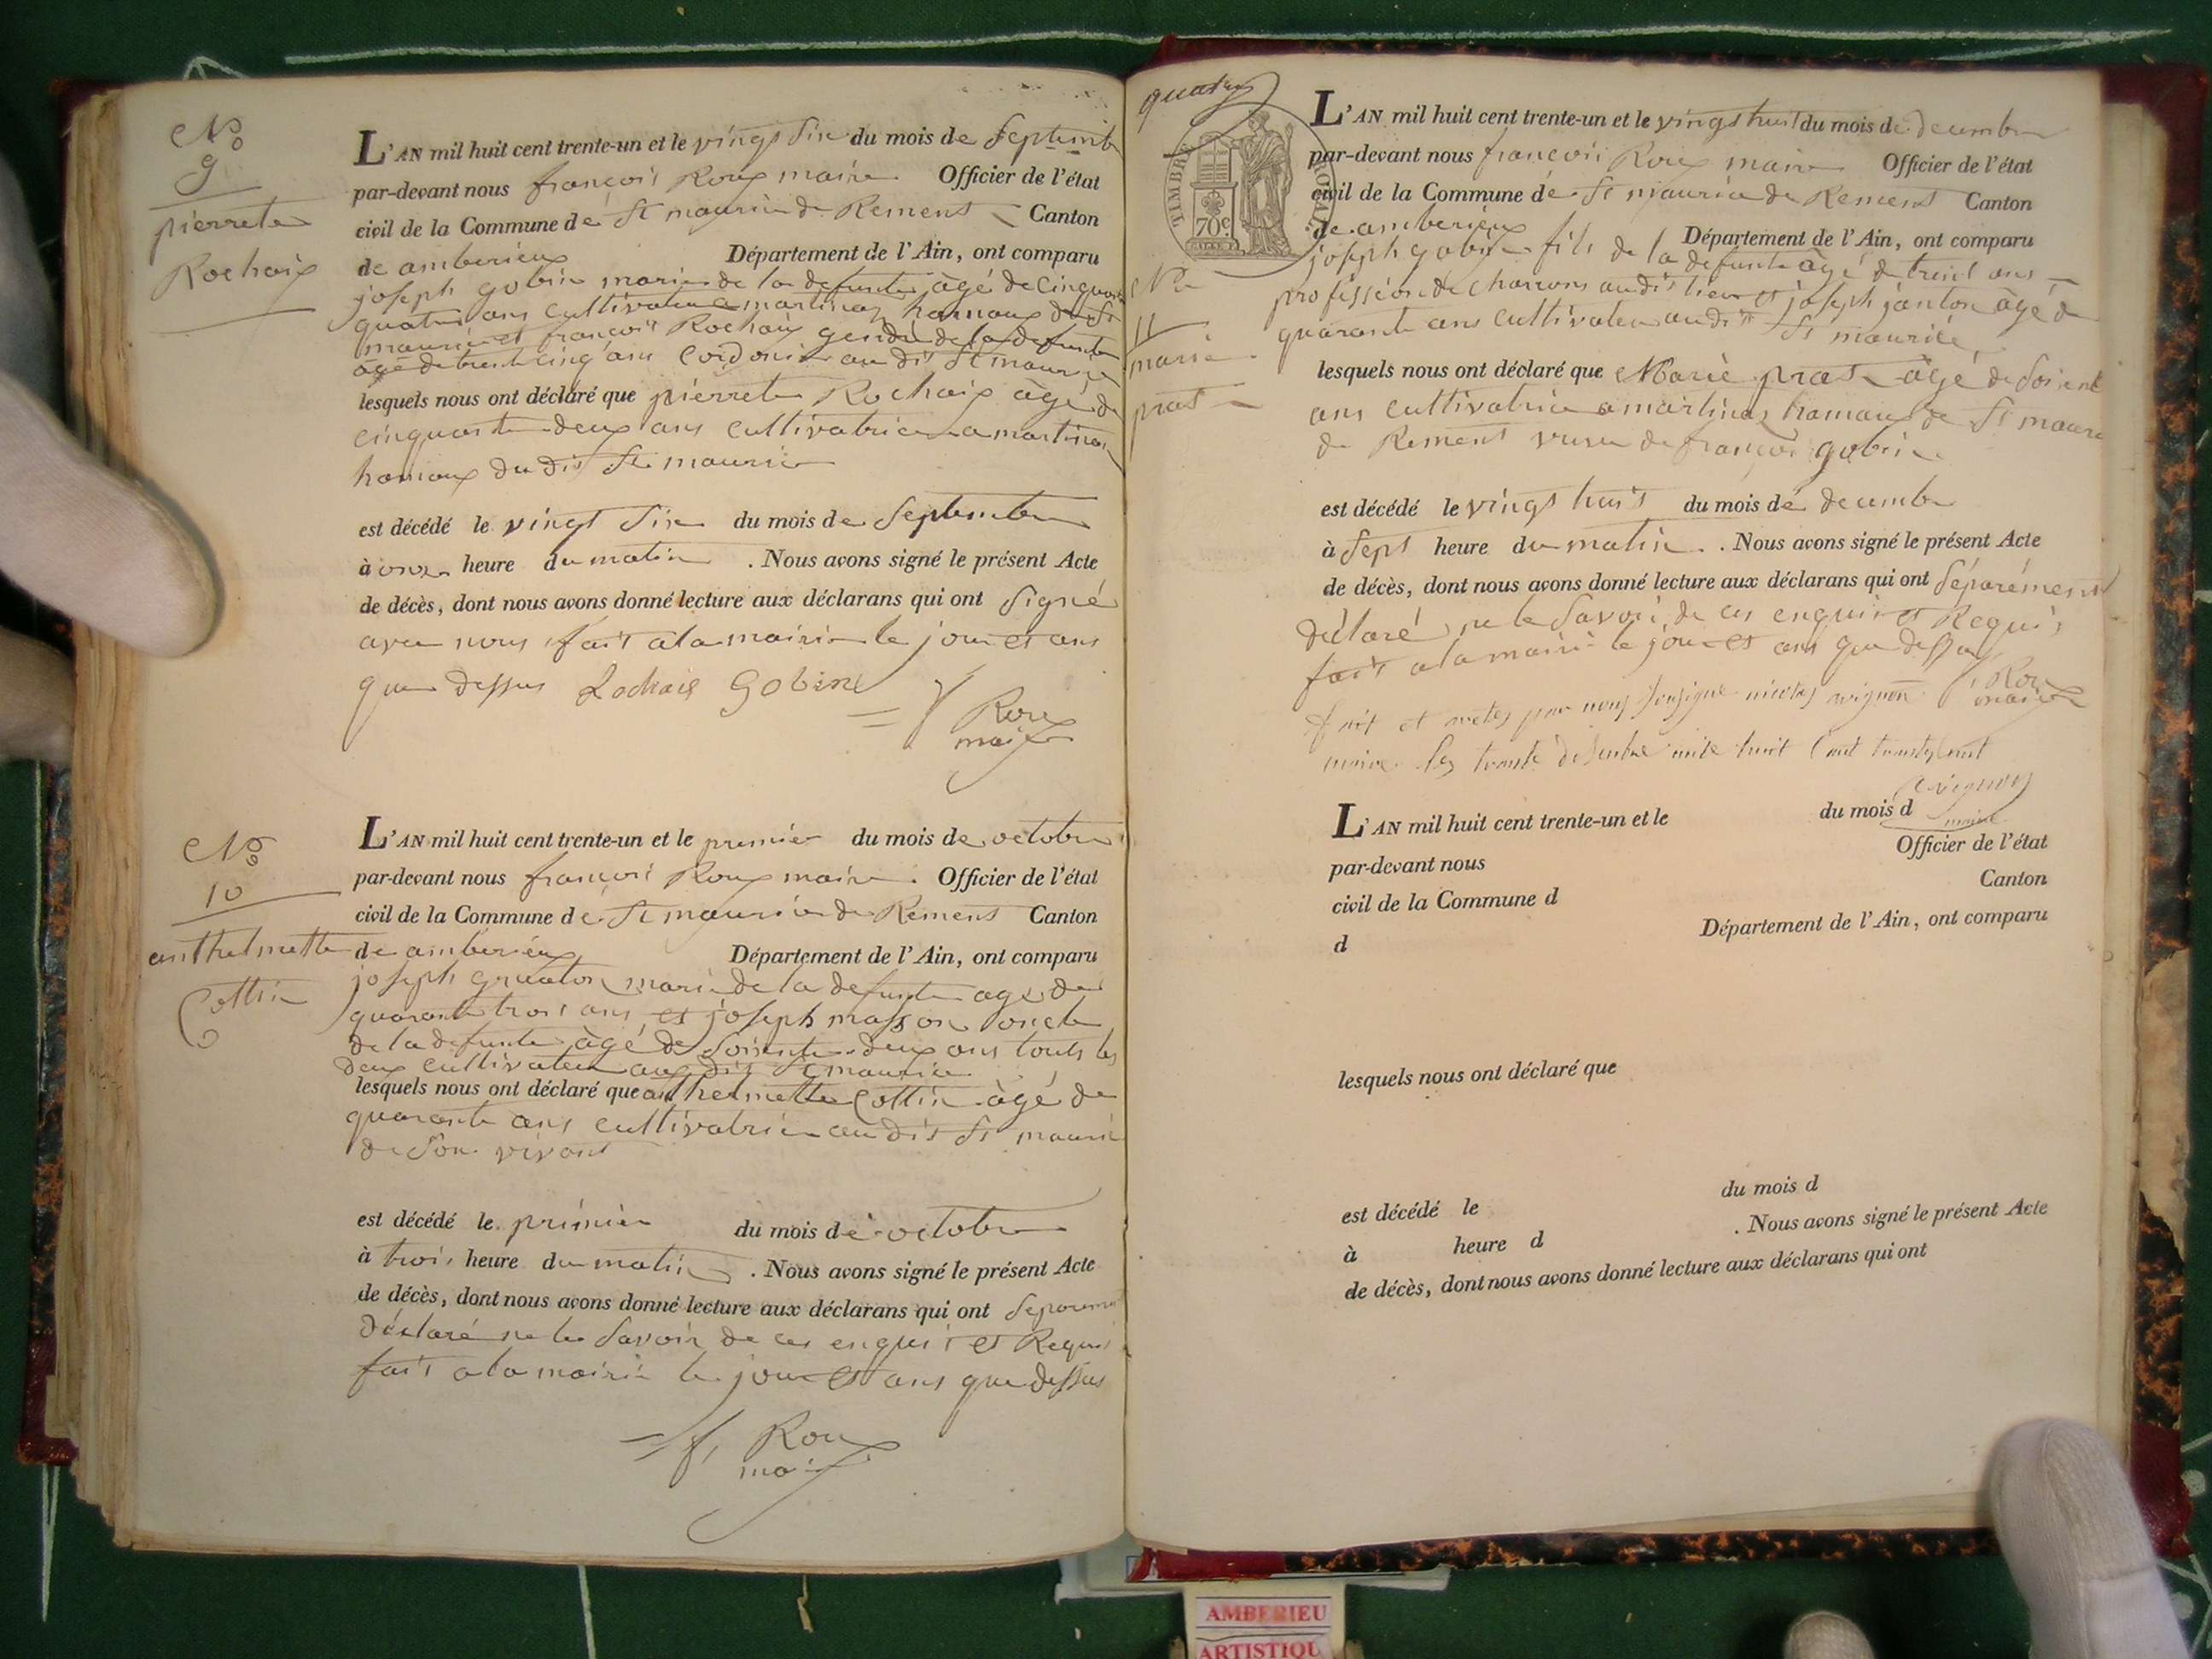 No
9
pierrete
Rochaix
L'AN mil huit cent trente-un et le vingt six du mois de Septemb
par-devant nous françois Roux maire Officier de l'état
civil de la Commune de St maurice de Remens Canton
de amberieux Département de l'Ain, ont comparu
joseph gobin marie de la defunte âgé de cinquante
quatre ans cultivateur a martinaz hamaux du St
maurice et françois Rochaix gendre de la defunte
âgé de trente cinq ans cordonier au dit St maurice
lesquels nous ont déclaré que pierrete Rochaix âgé de
cinquante deux ans cultivatrice a martinaz
hamaux du dit St maurice
est décédé le vingt six du mois de Septembre
à onze heure du matin . Nous avons signé le présent Acte
de décès, dont nous avons donné lecture aux déclarans qui ont Signé
avec nous fait a la mairie le jour et ans
que dessus Rochaix Gobin
Roux
maire
No
10
anthelmette
Cottin
L'AN mil huit cent trente-un et le premier du mois de octobre
par-devant nous françois Roux maire Officier de l'état
civil de la Commune de St maurice de Remens Canton
de amberieux Département de l'Ain, ont comparu
joseph gruaton marie de la defunte age de
quarante trois ans et joseph masson oncle
de la defunte âgé de soisente deux ans touts les
deux cultivateur au dit St maurice
lesquels nous ont déclaré que anthelmette Cottin âgé de
quarante ans cultivatrice au dit St maurice
de son vivant
est décédé le premier du mois de octobre
à trois heure du matin . Nous avons signé le présent Acte
de décès, dont nous avons donné lecture aux déclarans qui ont Séparement
déclaré ne le Savoir de ces enquis et Requis
fait a la mairie le jour et ans que dessus
f, Roux
maire
quatre
TIMBRE ROYAL
70c
No
11
marie
prat
L'AN mil huit cent trente-un et le vingt huit du mois de decembre
par-devant nous françois Roux maire Officier de l'état
civil de la Commune de St maurice de Remens Canton
de amberieux Département de l'Ain, ont comparu
joseph gobin fils de la defunte âgé de trent ans
profession de charrons au dit lieu et joseph janton âgé de
quarante ans cultivateur au dit St maurice
lesquels nous ont déclaré que Marie prat âgé de soisent
ans cultivatrice a martinaz hamaux de St mauri
de Remens veuve de françois gobin
est décédé le vingt huit du mois de decembre
à Sept heure du matin . Nous avons signé le présent Acte
de décès, dont nous avons donné lecture aux déclarans qui ont Séparément
déclaré ne le Savoir, de ces enquis et Requis
fait a la mairie le jour et ans que dessus
f, Roux
maire
par nous
maire les trante huit cent
avignon
maire
L'AN mil huit cent trente-un et le du mois d
par-devant nous Officier de l'état
civil de la Commune d Canton
d Département de l'Ain, ont comparu
lesquels nous ont déclaré que
est décédé le du mois d
à heure d . Nous avons signé le présent Acte
de décès, dont nous avons donné lecture aux déclarans qui ont
AMBERIEU
ARTISTIQU